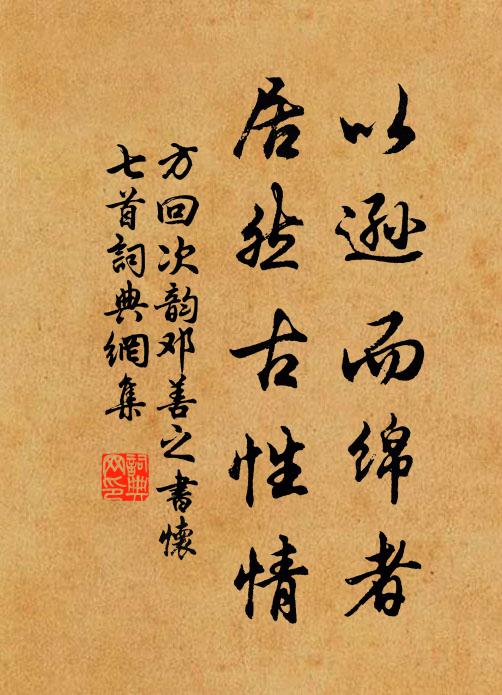 以遜而绵者
居然古性情
方回次韵邓善之書懷
七首詞典網集
詞典
网印